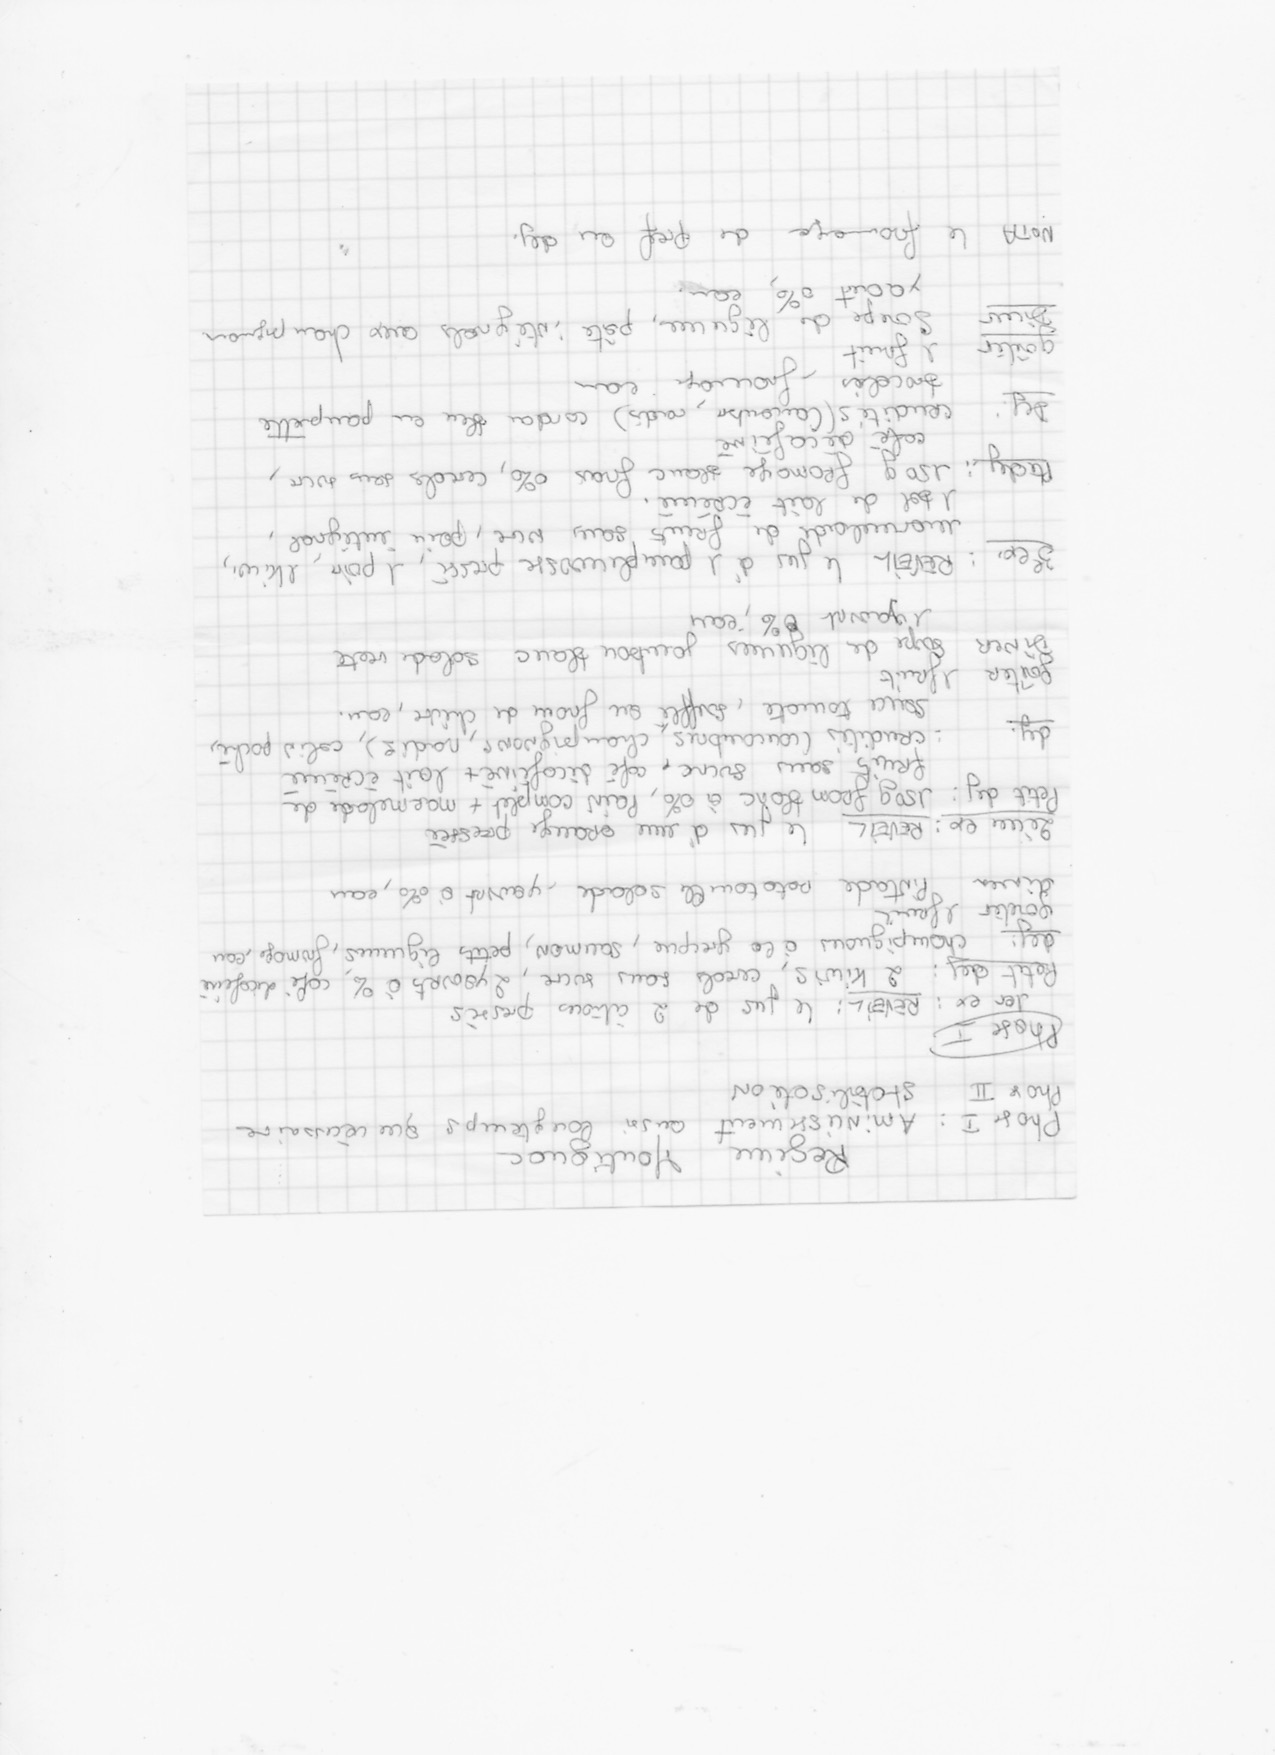 Regime Montignac
Phase I : Aminissement aussi longtemps que nécessaire
Phase II Stabilisation
Phase I
1er ex : REVEIL : le jus de 2 citrons pressés
Petit dej : 2 kiwis, cereals sans sucre, 2 yaourts à 0%, café décaféiné
dej : champignons à la grecque, saumon, petits légumes, fromage, eau
Goûter 1 fruit
diner Pintade ratatouille salade yaourt à 0%, eau
2eime ex : REVEIL le jus d'une orange pressée
Petit dej : 150g from blanc à 0%, Pain complet + marmelade de
fruits sans sucre, café décaféiné + lait écrémé
dej. : crudités (concombres, champignons, radis), colin poché,
sauce tomate, soufflé au from de chèvre, eau.
Goûter 1 fruit
DINER Soupe de légumes jambon blanc salade verte
1 yaourt 0%, eau
3 ex. : REVEIL le jus d'1 pamplemousse pressé, 1 poire, 1 kiwi,
marmelade de fruits sans sucre, pain intégral,
1 bol de lait écrémé.
Ptdej : 150 g fromage blanc frais 0%, cereals sans sucre,
café décaféiné
Dej : crudités (concombre, radis) cordon bleu en paupiette
brocolis fromage eau
Goûter 1 fruit
Diner Soupe de légumes, pâte intégrals aux champignons
yaourt 0%, eau.
NOTA le fromage de pref au dej.